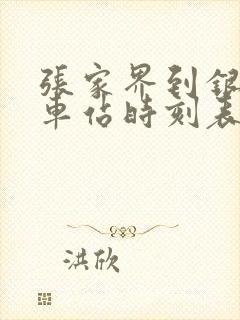 張家界到銀
車佔時刻表
洪欣